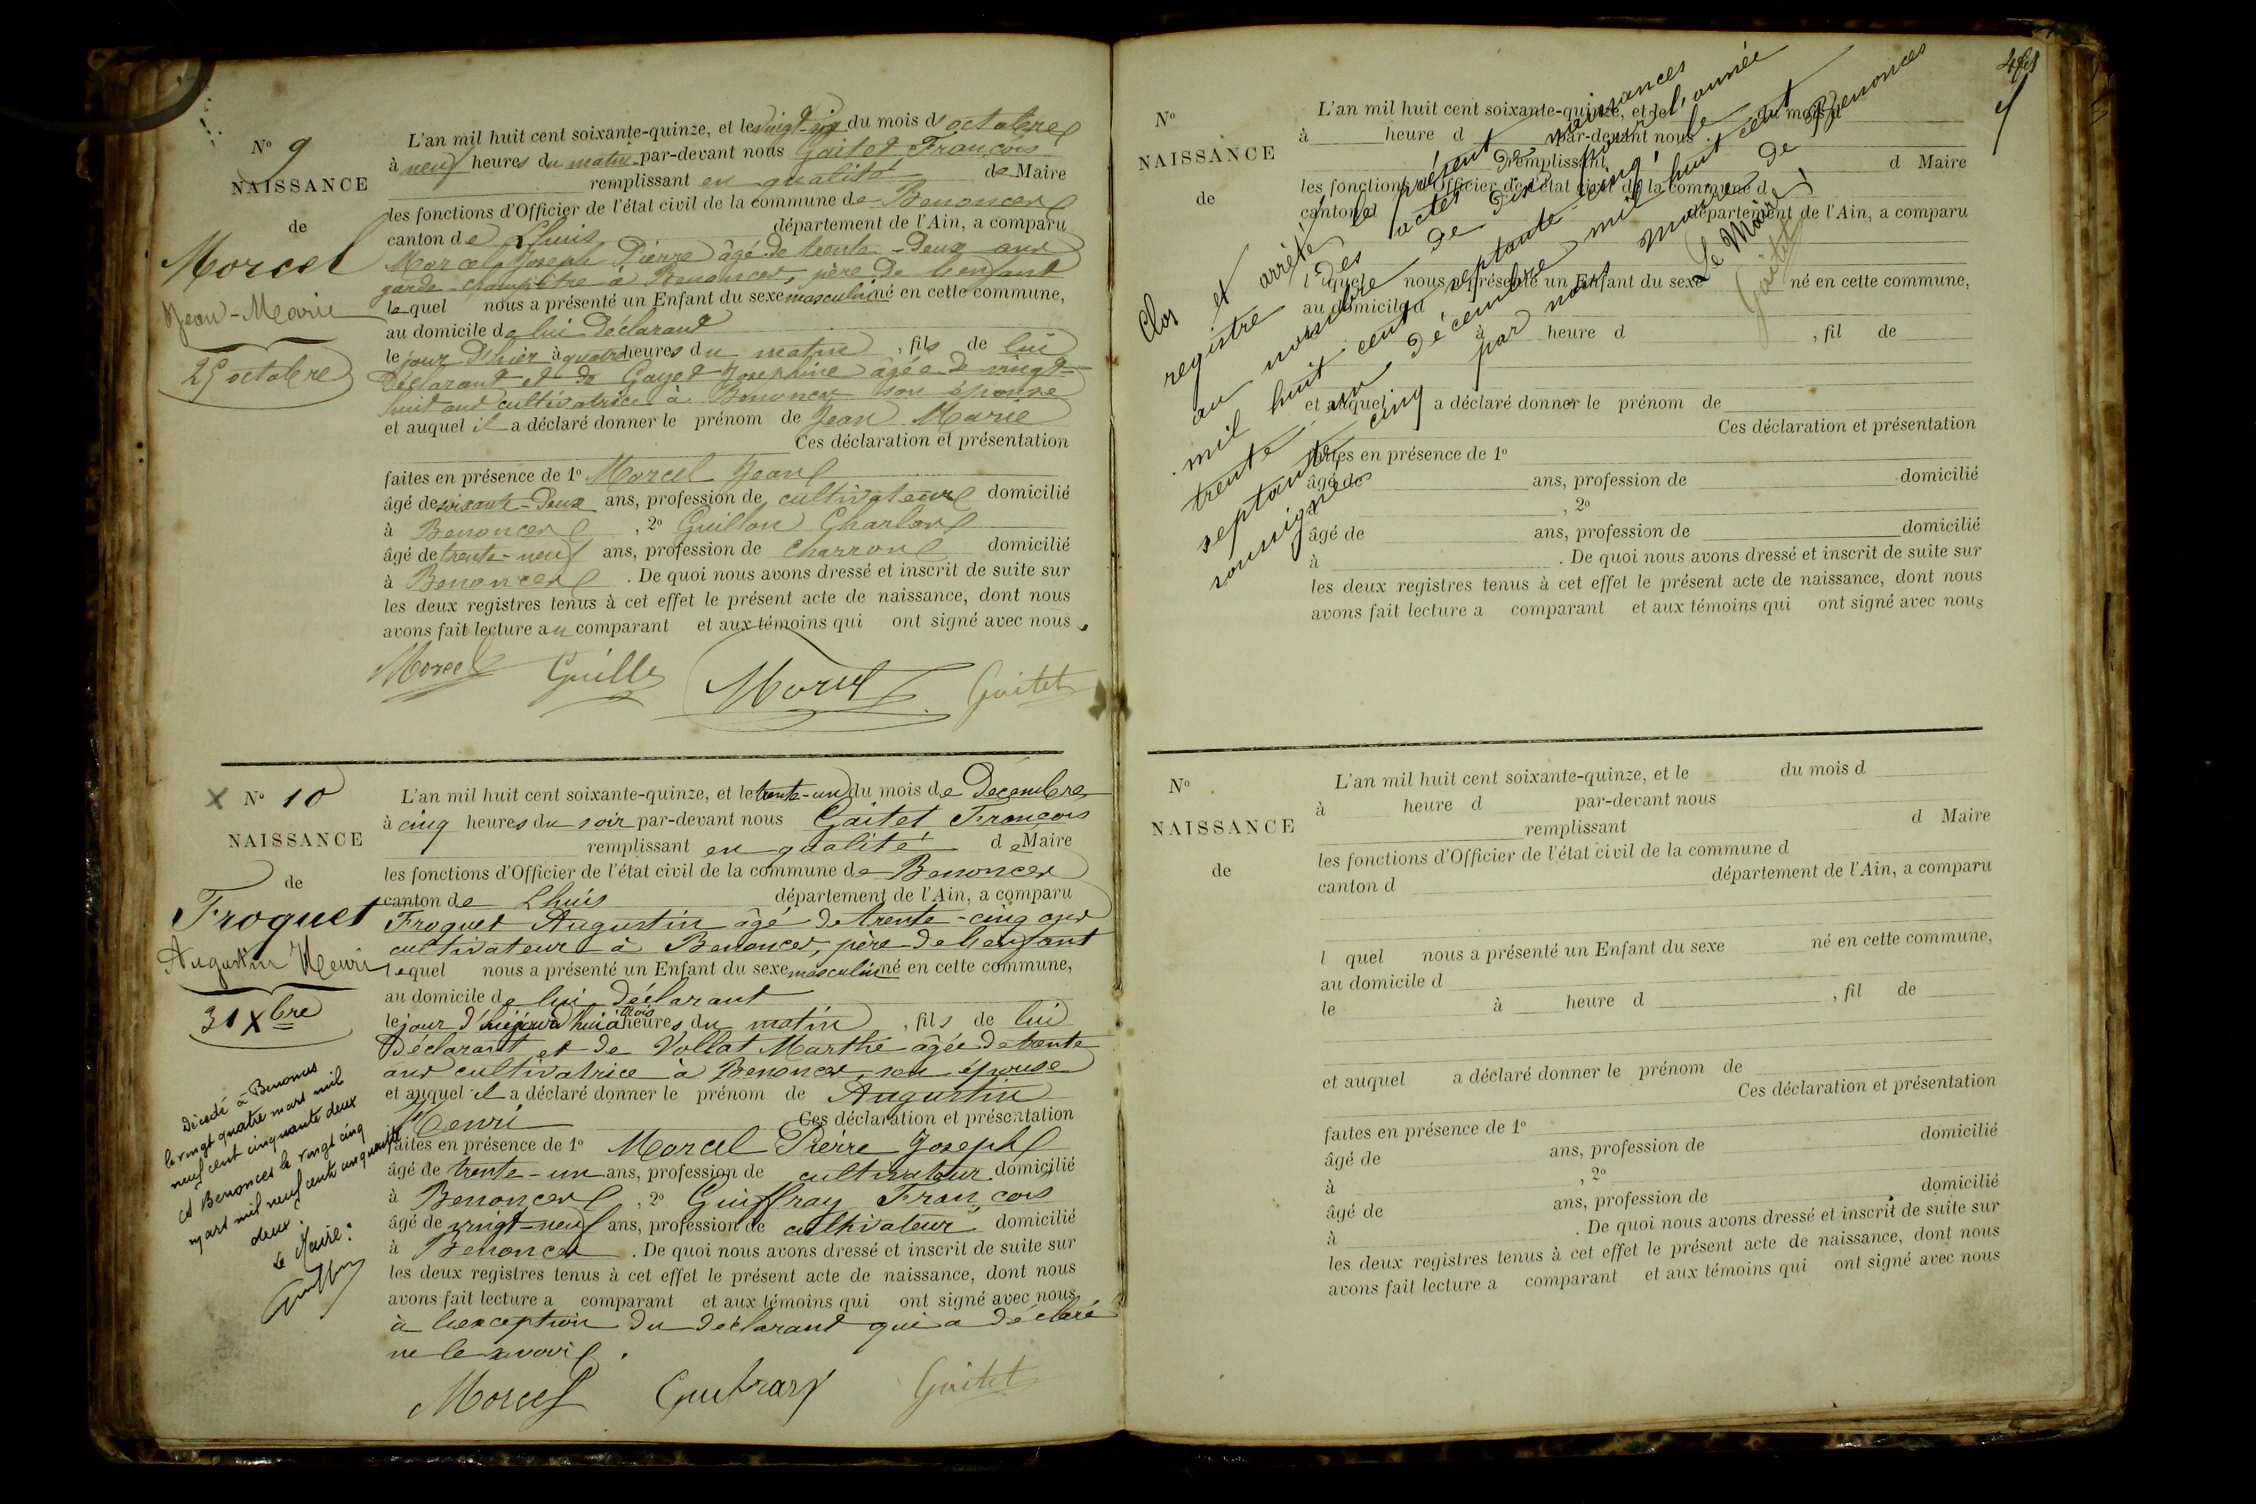 N° 9
NAISSANCE
de
Morcel
Jean-Marie
25 octobre
L'an mil huit cent soixante-quinze, et le vingt-six du mois d octobre
à neuf heures du matin par-devant nous Gaitet François
remplissant en qualité de Maire
les fonctions d'Officier de l'état civil de la commune de Benonces
canton de Lhuis département de l'Ain, a comparu
Morcel Joseph Pierre âgé de trente-deux ans
garde-champêtre à Benonces, père de l'enfant
lequel nous a présenté un Enfant du sexe masculin né en cette commune,
au domicile de lui déclarant
le jour d'hier à quatre heures du matin, fils de lui
déclarant et de Gayet Josephine âgée de vingt-
huit ans cultivatrice à Benonces son épouse
et auquel il a déclaré donner le prénom de Jean Marie
Ces déclaration et présentation
faites en présence de 1° Morcel Jean
âgé de soixante-deux ans, profession de cultivateur domicilié
à Benonces, 2° Guillon Charles
âgé de trente-neuf ans, profession de charron domicilié
à Benonces. De quoi nous avons dressé et inscrit de suite sur
les deux registres tenus à cet effet le présent acte de naissance, dont nous
avons fait lecture au comparant et aux témoins qui ont signé avec nous.
Morcel Morcel Gaitet
X N° 10
NAISSANCE
de
Froquet
Augustin Henri
31 Xbre
L'an mil huit cent soixante-quinze, et le trente-un du mois de Décembre
à cinq heures du soir par-devant nous Gaitet François
remplissant en qualité de Maire
les fonctions d'Officier de l'état civil de la commune de Benonces
canton de Lhuis département de l'Ain, a comparu
Froquet Augustin âgé de trente-cinq ans
cultivateur à Benonces, père de l'enfant
lequel nous a présenté un Enfant du sexe masculin né en cette commune,
au domicile de lui déclarant
le jour d'aujourd'hui à trois heures du matin, fils de lui
Déclarant et de Vollat Marthe âgée de trente
ans cultivatrice à Benonces son épouse
et auquel il a déclaré donner le prénom de Augustin
Henri Ces déclaration et présentation
faites en présence de 1° Morcel Pierre Joseph
âgé de trente-un ans, profession de cultivateur domicilié
à Benonces, 2° Guiffray François
âgé de vingt-neuf ans, profession de cultivateur domicilié
à Benonces. De quoi nous avons dressé et inscrit de suite sur
les deux registres tenus à cet effet le présent acte de naissance, dont nous
avons fait lecture a comparant et aux témoins qui ont signé avec nous
à l'exception du déclarant qui a déclaré
ne le savoir.
Morcel Gaitet
Décédé à Benonces
le vingt quatre mars mil
neuf cent cinquante deux
Benonces le vingt cinq
mars mil neuf cent cinquante
deux.
Le Maire:
N°
NAISSANCE
de
L'an mil huit cent soixante-quinze, et le du mois d
à heure d par-devant nous
remplissant d Maire
les fonctions d'Officier de l'état civil de la commune d
canton d département de l'Ain, a comparu
l quel nous a présenté un Enfant du sexe né en cette commune,
au domicile d
à heure d , fil de
et auquel a déclaré donner le prénom de
Ces déclaration et présentation
faites en présence de 1°
âgé de ans, profession de domicilié
, 2°
âgé de ans, profession de domicilié
à . De quoi nous avons dressé et inscrit de suite sur
les deux registres tenus à cet effet le présent acte de naissance, dont nous
avons fait lecture a comparant et aux témoins qui ont signé avec nous
Clos et arrêté le présent
registre des actes de naissances
au nombre de dix pour l'année
mil huit cent septante-cinq le
trente-un décembre mil huit cent
septante cinq par nous maire de Benonces
soussigné
Le Maire
Gaitet
N°
NAISSANCE
de
L'an mil huit cent soixante-quinze, et le du mois d
à heure d par-devant nous
remplissant d Maire
les fonctions d'Officier de l'état civil de la commune d
canton d département de l'Ain, a comparu
l quel nous a présenté un Enfant du sexe né en cette commune,
au domicile d
le à heure d , fil de
et auquel a déclaré donner le prénom de
Ces déclaration et présentation
faites en présence de 1°
âgé de ans, profession de domicilié
à , 2°
âgé de ans, profession de domicilié
à . De quoi nous avons dressé et inscrit de suite sur
les deux registres tenus à cet effet le présent acte de naissance, dont nous
avons fait lecture a comparant et aux témoins qui ont signé avec nous